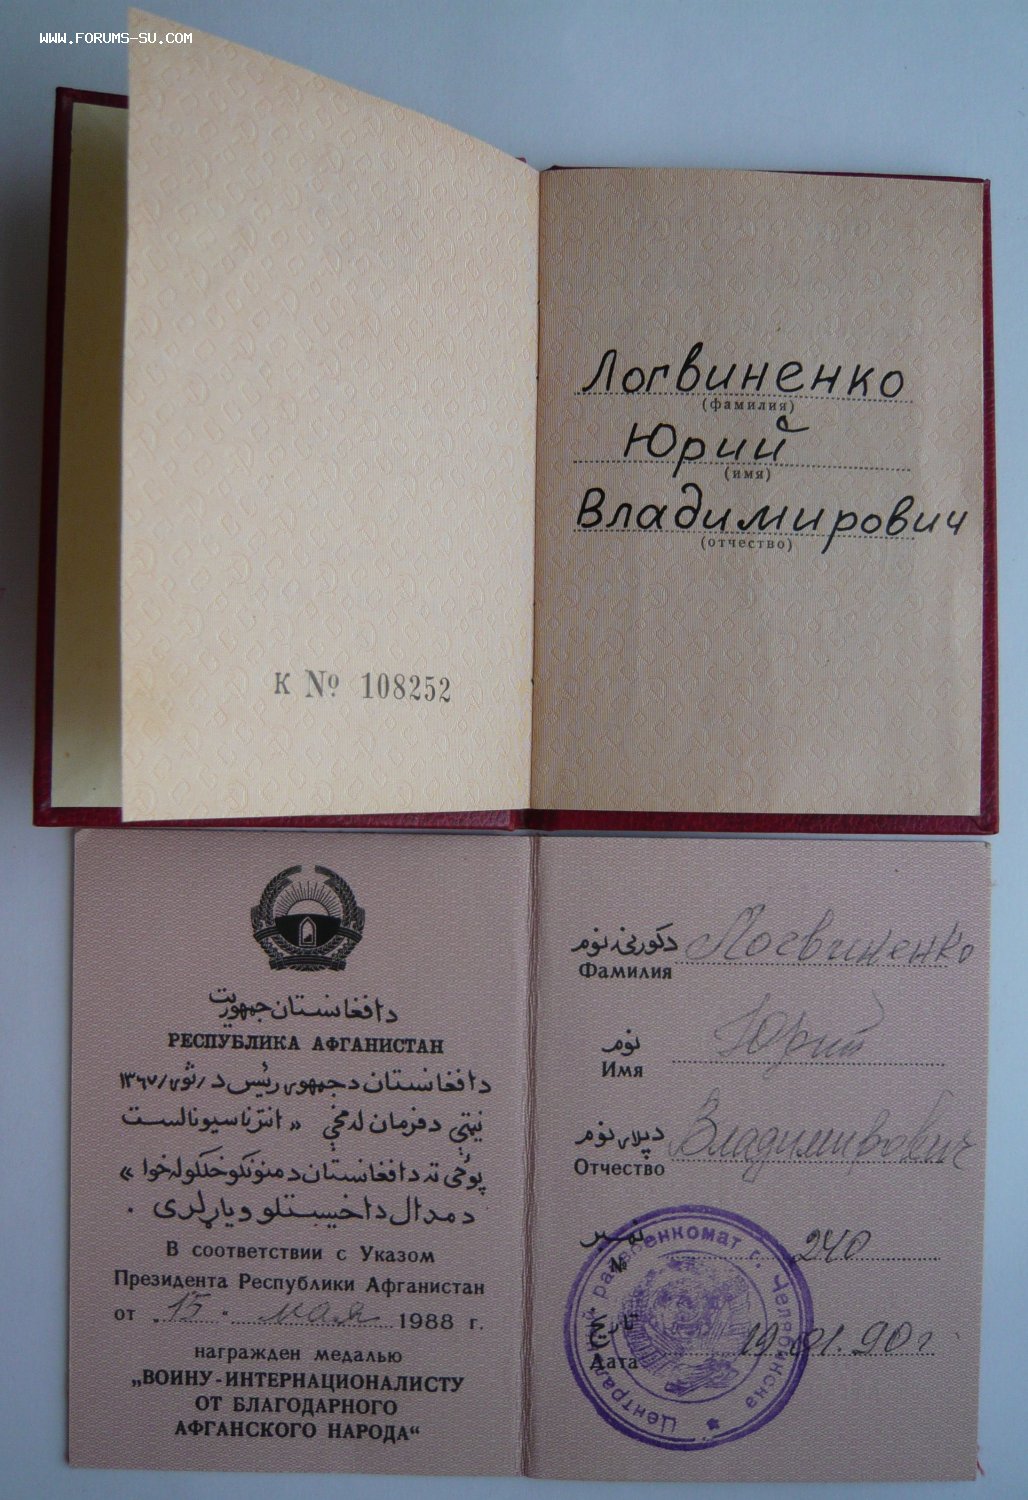 WWW.FORUMS-SU.COM
К № 108252
Логвиненко
(фамилия)
Юрий
(имя)
Владимирович
(отчество)
دافغانستان جمهوریت
РЕСПУБЛИКА АФГАНИСТАН
دافغانستان دجمهوری رئیس د /ثور/ ۱۳۶۷
نیټې دفرمان له مخې « انترناسیونالست
پوځی ته دافغانستان دمننونکو خلکو له خوا »
دمدال داخیستلو ویاړ لری .
В соответствии с Указом
Президента Республики Афганистан
от „15“ мая 1988 г.
награжден медалью
„ВОИНУ-ИНТЕРНАЦИОНАЛИСТУ
ОТ БЛАГОДАРНОГО
АФГАНСКОГО НАРОДА“
دکورنۍ نوم Логвиненко
Фамилия
نوم Юрий
Имя
دپلار نوم Владимирович
Отчество
نمبر 240
№
تاریخ 19.01.90 г.
Дата
Центральный райвоенкомат г. Челябинска